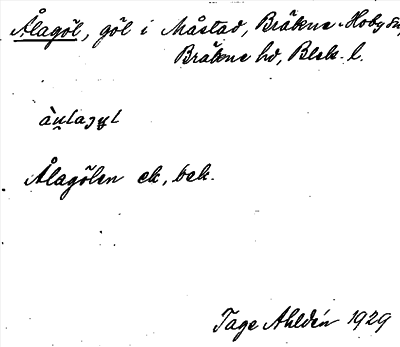 Ålagöl, göl i Måstad, Bräkne-Hoby sn,
Bräkne hd, Blek. l.
Ålagölen ek, bek.
Tage Ahldén 1929